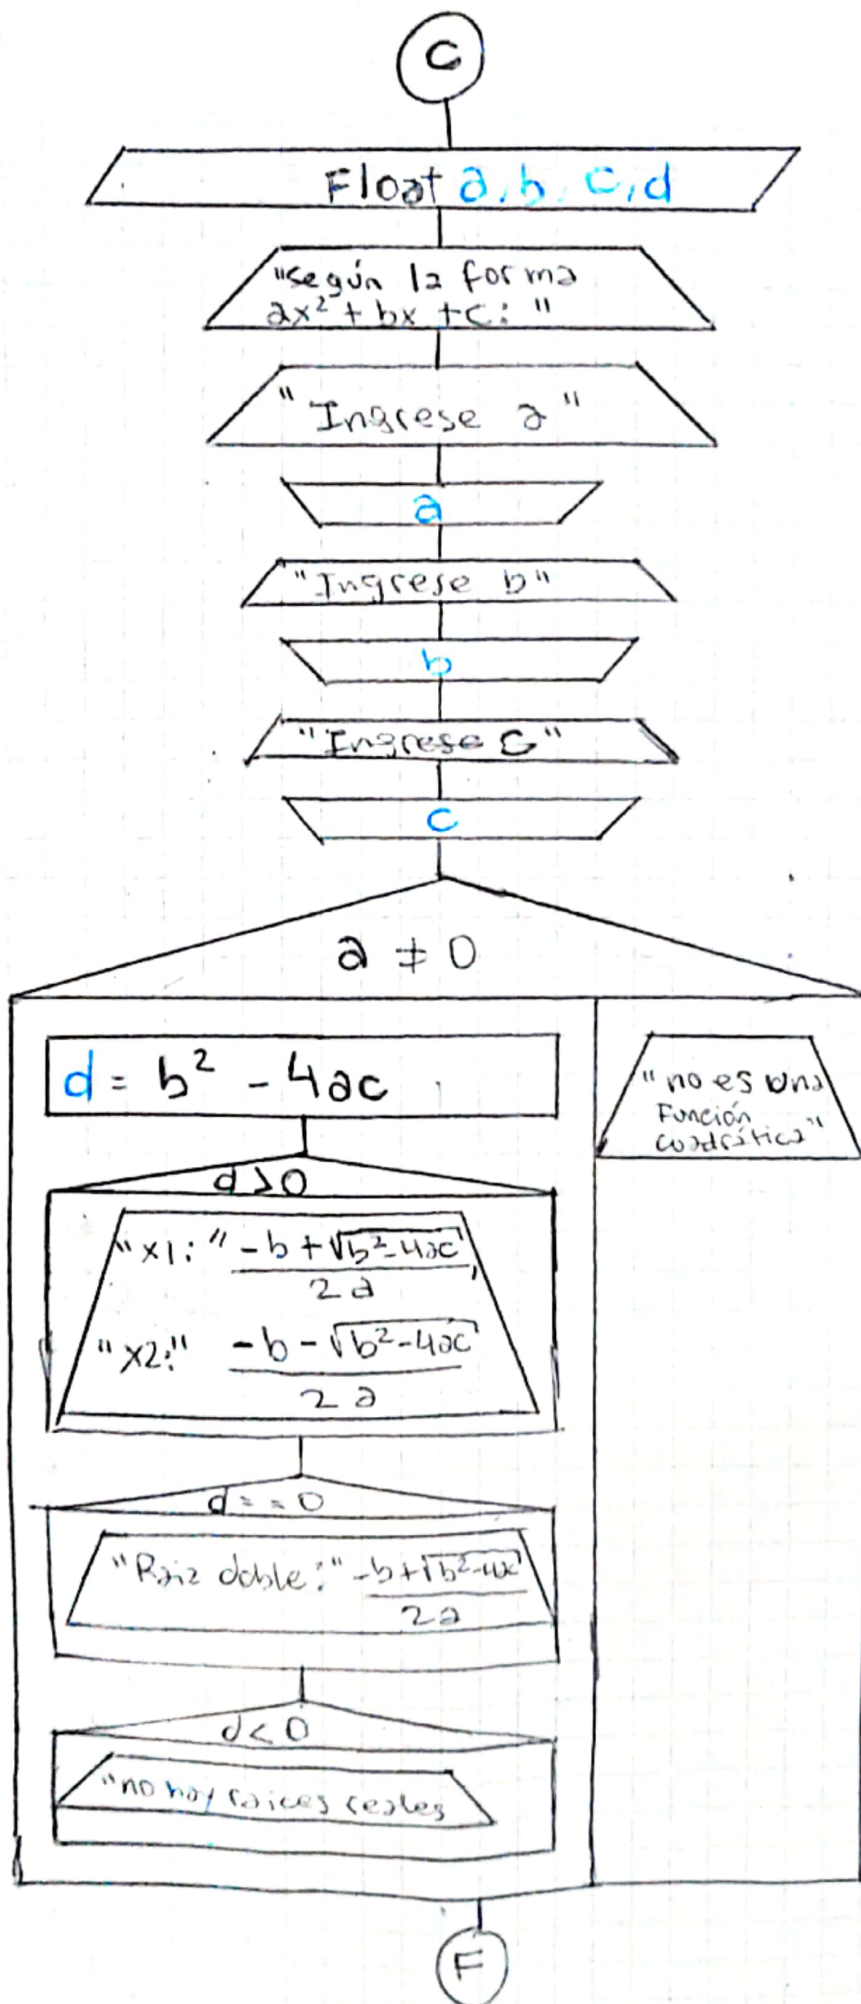 C
Float a, b, c, d
"según la forma
ax² + bx + c: "
"Ingrese a"
a
"Ingrese b"
b
"Ingrese C"
c
a ≠ 0
d = b² - 4ac
"no es una
Función
cuadrática"
d > 0
"x1:" -b + √b²-4ac,
2a
"x2:" -b - √b²-4ac
2a
d == 0
"Raiz doble:" -b+√b²-4ac
2a
d < 0
"no hay raices reales
F